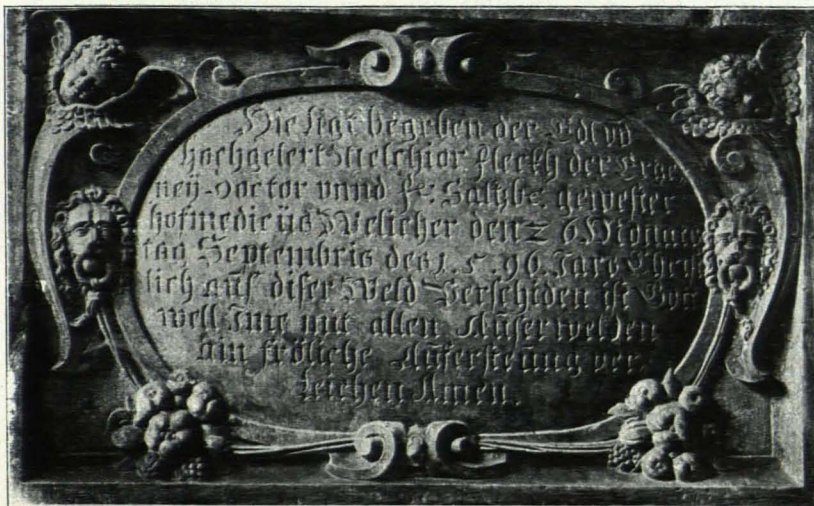 Hie ligt begrben der Edl vnd
hochgelert Melchior fleckh der Ertze
ney-Doctor vnnd fr: Saltzb: gewester
hofmedicüs Welicher den 26 Monats
tag Septembris des 1.5.96. Jars Christ
lich aüs diser Weld Verschiden ist Gott
well Ime mit allen Aüserwelden
ain fröliche Aüfersteüng ver
leichen Amen.